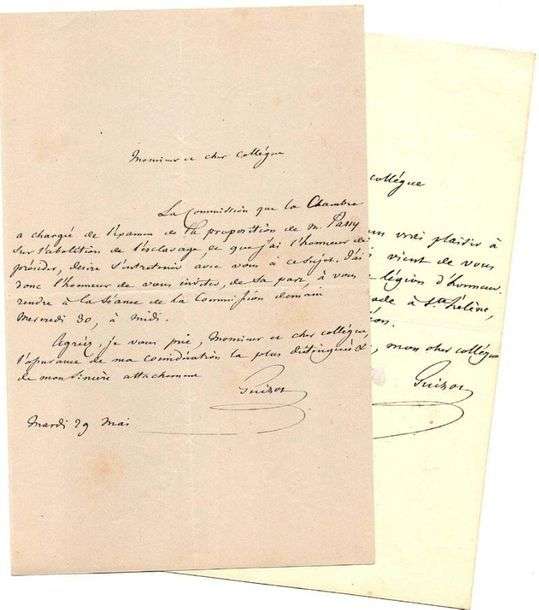 Monsieur et cher Collègue
La Commission que la Chambre
a chargé de l'examen de la proposition de M. Passy
sur l'abolition de l'esclavage, et que j'ai l'honneur de
présider, desire s'entretenir avec vous à ce sujet. J'ai
donc l'honneur de vous inviter, de sa part, à vous
rendre à la séance de la Commission demain
Mercredi 30, à midi.
Agréez, je vous prie, Monsieur et cher collègue,
l'assurance de ma considération la plus distinguée et
de mon sincère attachement
Guizot
Mardi 29 Mai
collègue
un vrai plaisir à
vient de vous
légion d'honneur.
à Ste Hélène,
mon cher collègue
Guizot